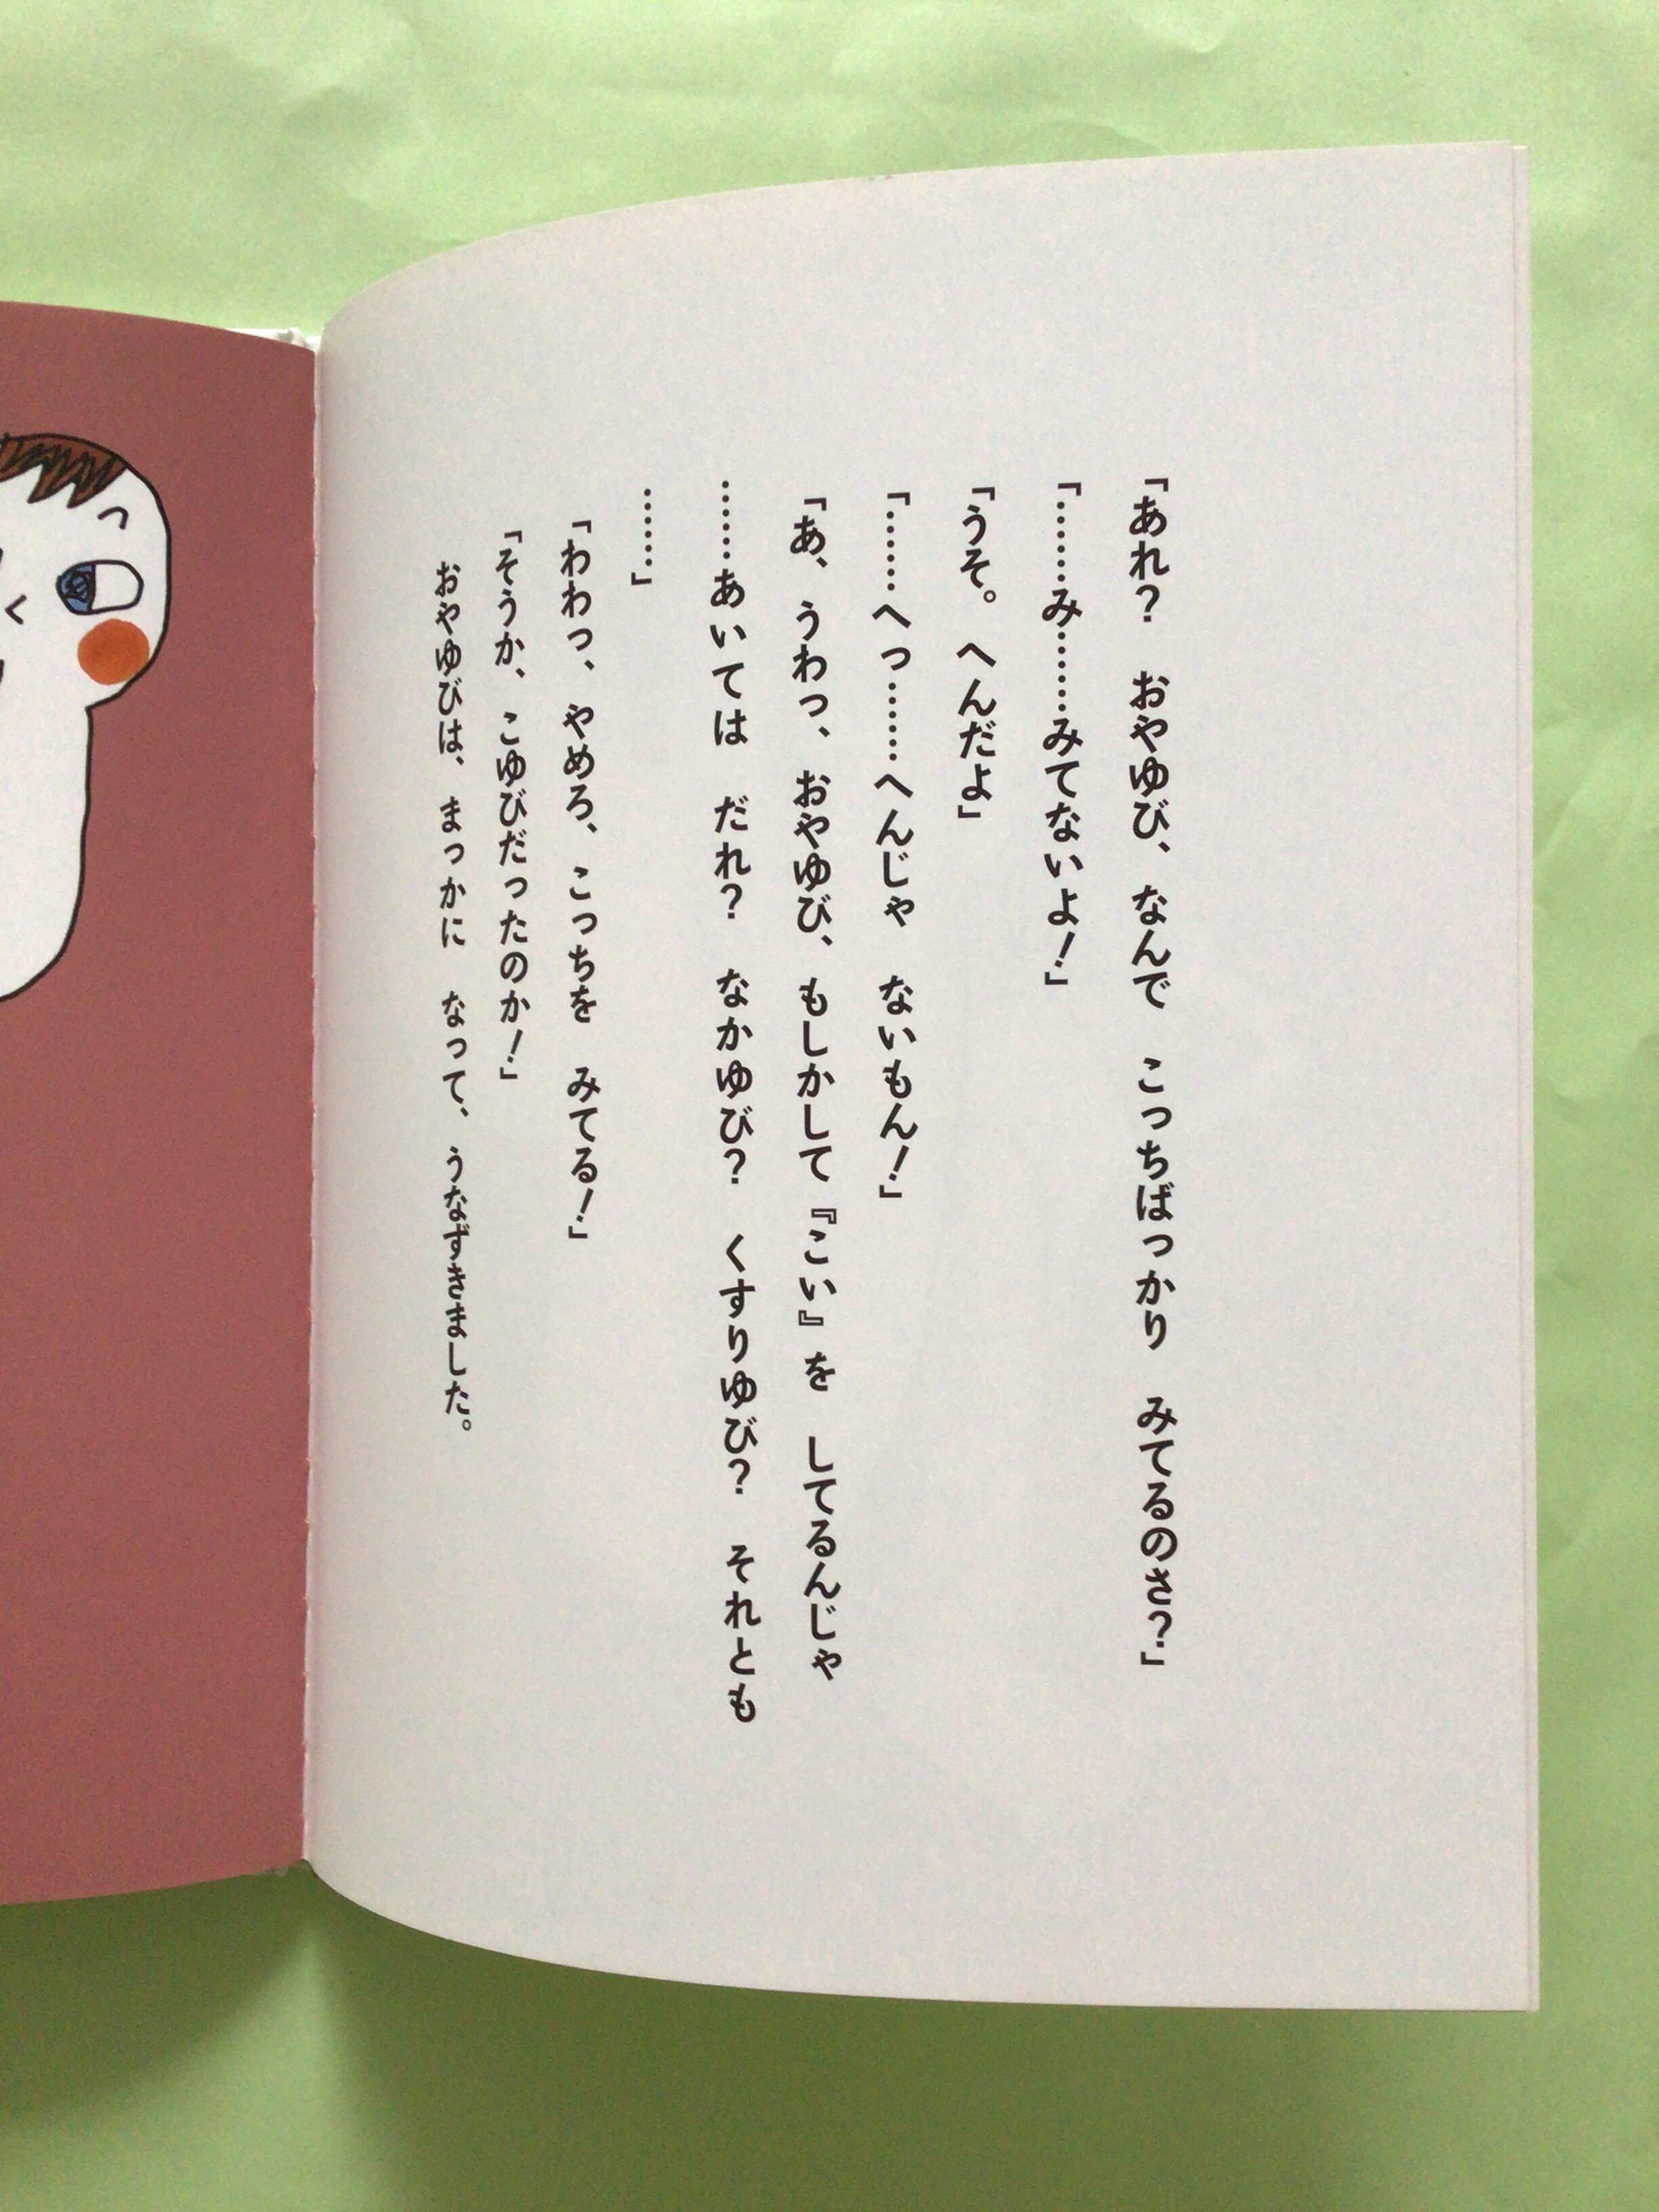 「あれ？　おやゆび、なんで　こっちばっかり　みてるのさ？」
「……み……みてないよ！」
「うそ。へんだよ」
「……へっ……へんじゃ　ないもん！」
「あ、うわっ、おやゆび、もしかして『こい』を　してるんじゃ
……あいては　だれ？　なかゆび？　くすりゆび？　それとも
……」
「わわっ、やめろ、こっちを　みてる！」
「そうか、こゆびだったのか！」
おやゆびは、まっかに　なって、うなずきました。